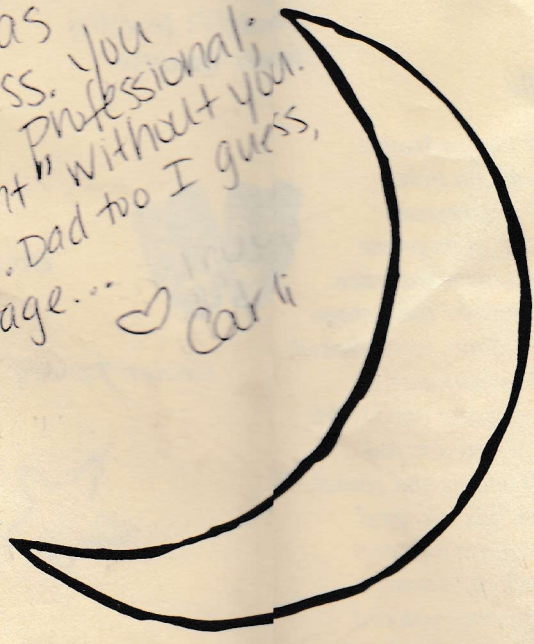 as
ss. You
Professional;
nt" without you.
. Dad too I guess,
age...
♡ Carli